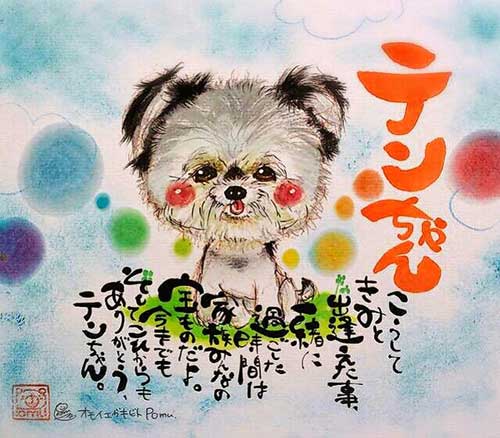 テンちゃん
こうして
きみと
出逢えた事、
一緒に
過ごした
時間は
家族みんなの
宝ものだよ。
今までも
そしてこれからも
ありがとう、
テンちゃん。
オモイエガキビト Pomu.